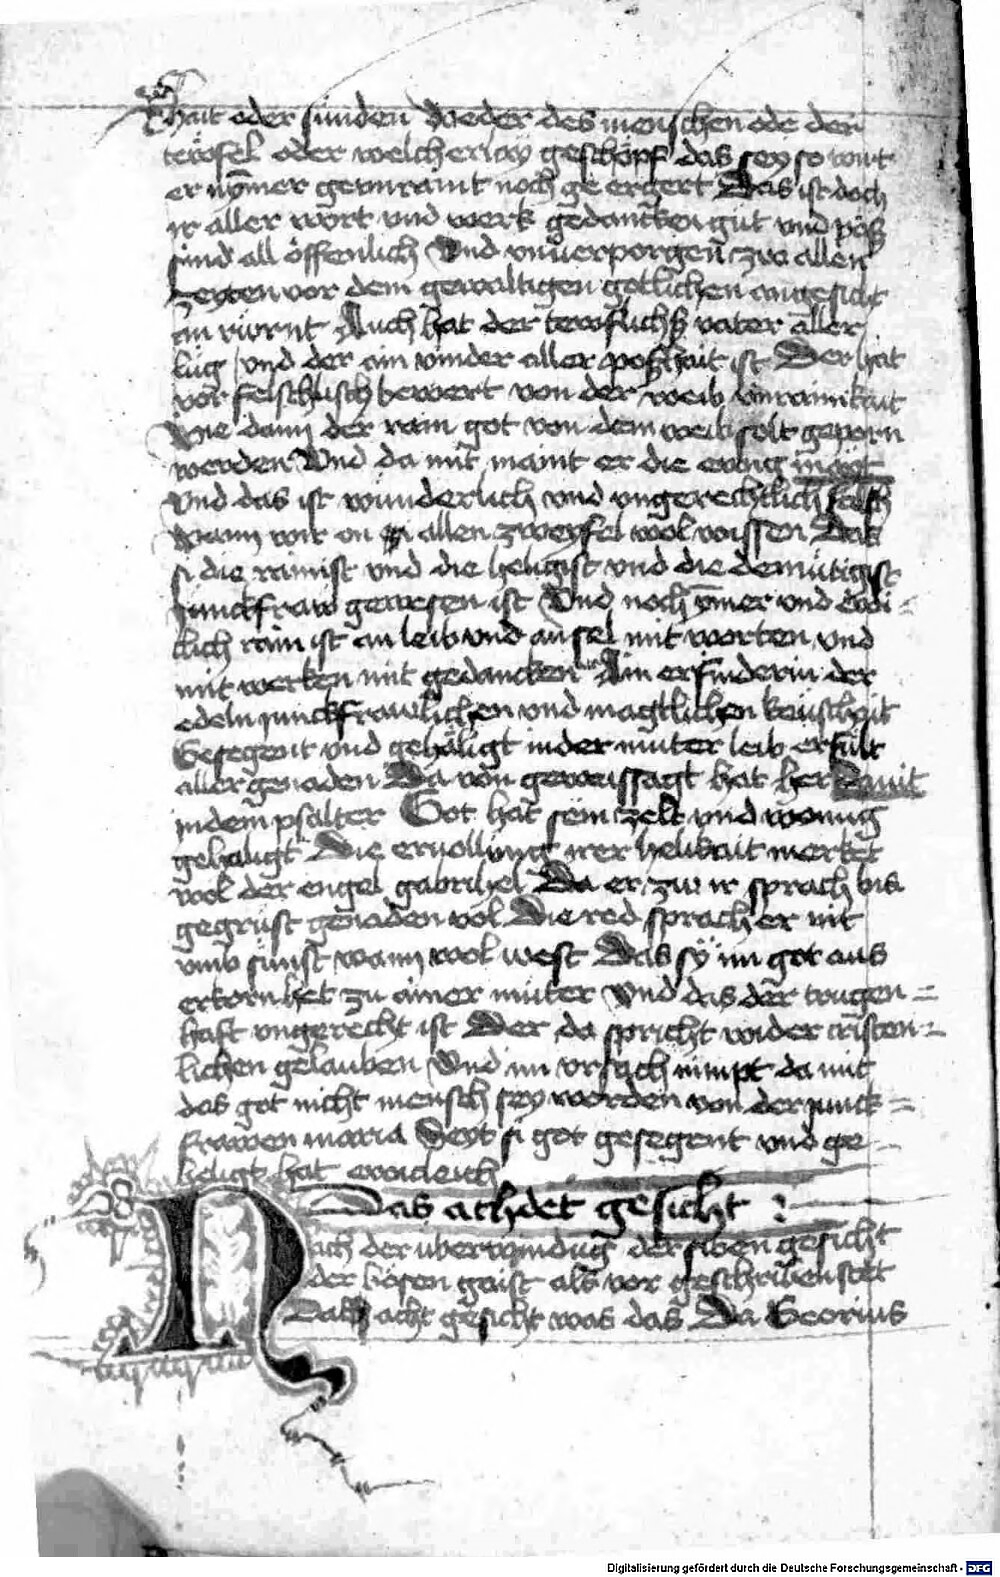 hait oder sünden Weder des menschen ode der
tewfel oder welcherlay geschöpf das sey so wirt
er nymer gemiramt noch ge ergert Das ist doch
ir aller wort und werk gedancken gut und pöß
sind all öffenlich Und unverporgen zw allen
zeyten vor dem gewaltigen gotlichen angesicht
an rürnt Auch hat der tewfuchß vater aller
lüg und der ain vinder aller poßhait ist Der hat
vor felschlisch bewert von der weib unrainikait
Wie dann der rain got von dem weib solt geporn
werden Und da mit maint er die ewing magt
Und das ist wunderlich und ungerechtlich falsch
wann wir on allen zweyfel wol wissen Das
si die rainist und die heligist und die demütigist
junckfraw gewesen ist Und noch ymer und ewi=
clich rain ist an leib und an sel mit worten und
mit werken mit gedancken Ain erfinderin der
edeln junckfrawlichen und magtlichen keuschait
Gesegent und gehaligt in der muter leib erfült
aller genaden Da von geweissagt hat her Davit
in dem psalter Got hat sein zelt und wonung
gehaligt Die ervollung irer helikait merket
wol der engel gabrihel Da er zu ir sprach bis
gegrüst genaden vol Die red sprach er nit
umb sünst wann wol west Das sy im got aus
erkorn het zu ainer muter Und das der trugen=
haft ungerecht ist Der da spricht wider cristen=
lichen gelauben Und im ursach nimpt da mit
das got nicht mensch sey worden von der junck=
frawen maria Seyt si got gesegent und ge=
heligt hat ewicleich
Das achdet gesicht
Nach der uberwindug der siben gesicht
der bösen gaist als vor geschriben stet
Das acht gesicht was das Da Georius
Digitalisierung gefördert durch die Deutsche Forschungsgemeinschaft - DFG